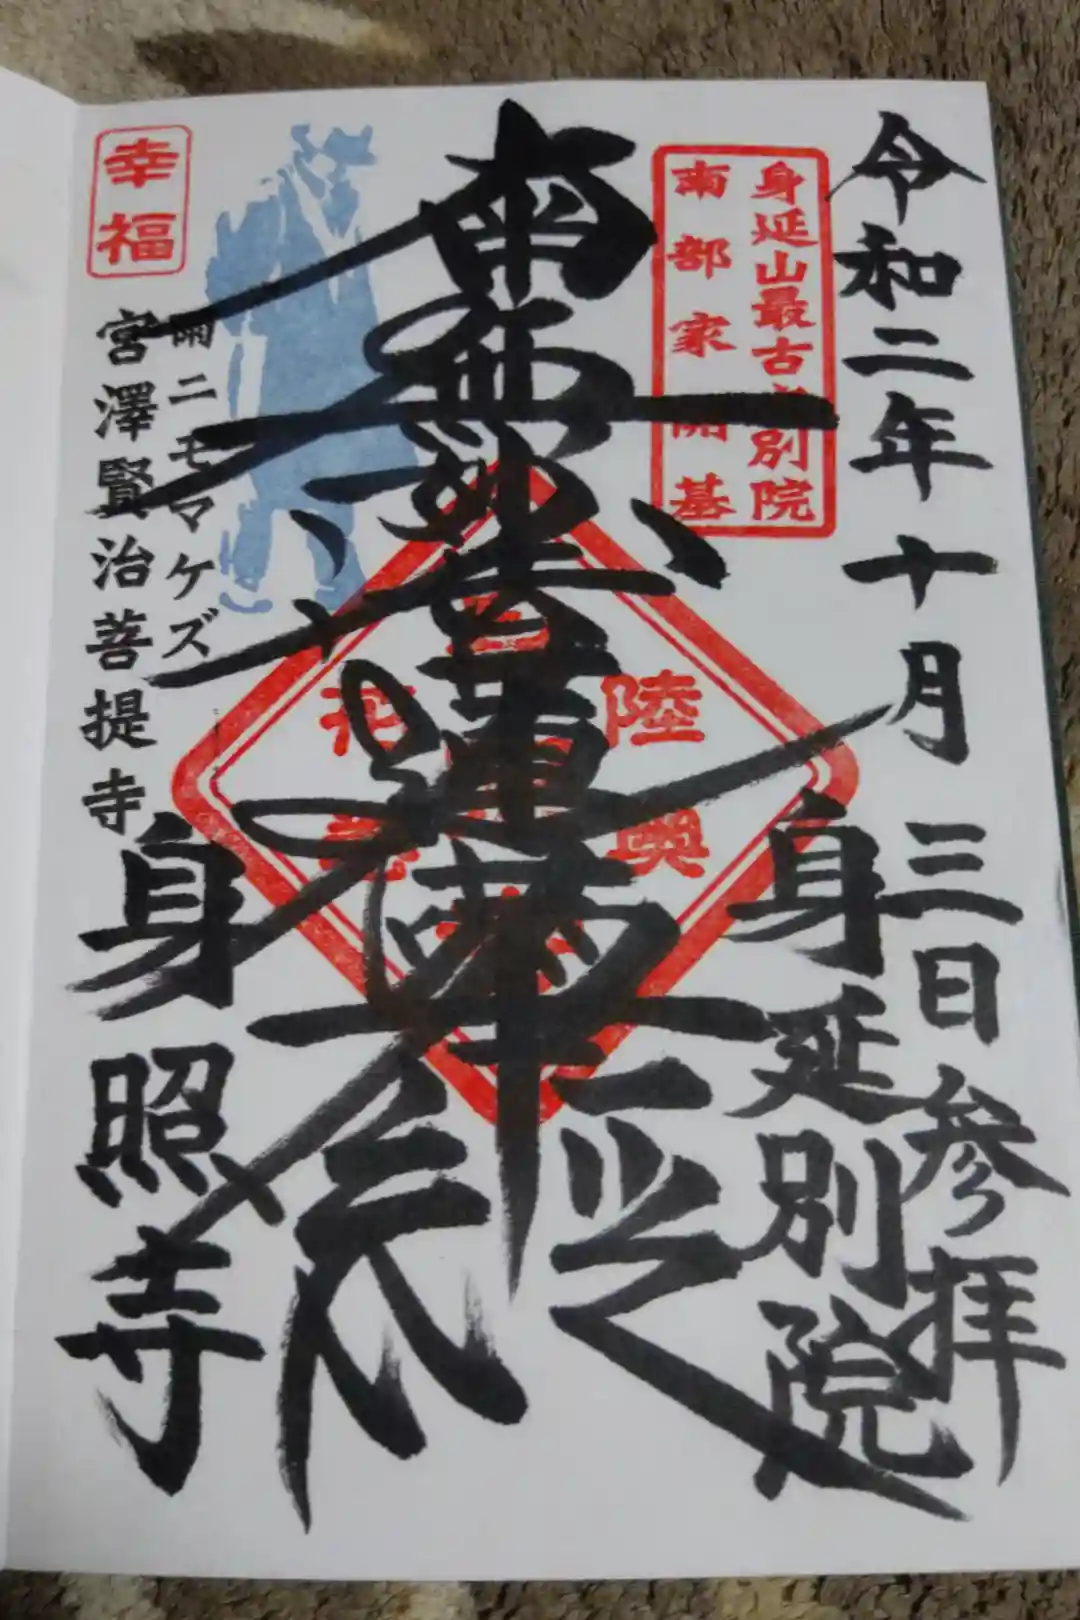 令和二年十月三日参拝
身延山最古之別院
南部家開基
身延別院
南無妙法蓮華経
陸奥
花巻
幸福
雨ニモマケズ
宮澤賢治菩提寺
身照寺